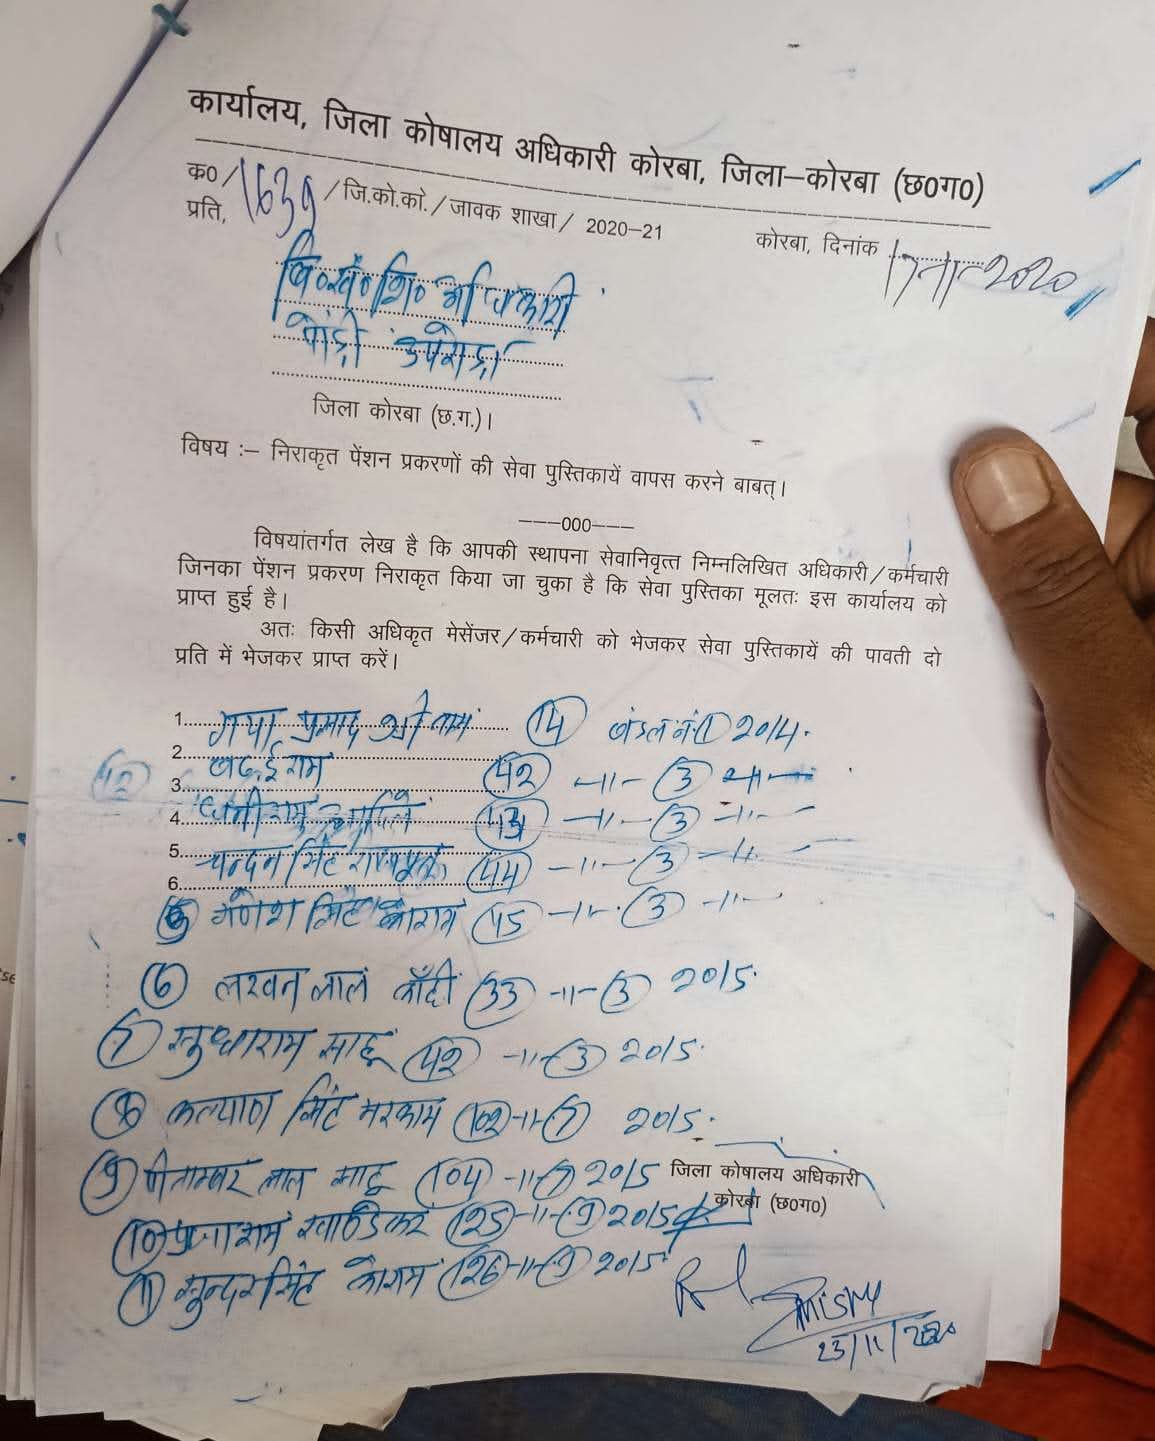 कार्यालय, जिला कोषालय अधिकारी कोरबा, जिला–कोरबा (छ0ग0)
क0 / 1639 / जि.को.को. / जावक शाखा / 2020–21 कोरबा, दिनांक 17-11-2020
प्रति,
वि०खं०शि० अधिकारी
पोंड़ी उपरोड़ा
जिला कोरबा (छ.ग.)।
विषय :– निराकृत पेंशन प्रकरणों की सेवा पुस्तिकायें वापस करने बाबत्।
–––000–––
विषयांतर्गत लेख है कि आपकी स्थापना सेवानिवृत्त निम्नलिखित अधिकारी / कर्मचारी
जिनका पेंशन प्रकरण निराकृत किया जा चुका है कि सेवा पुस्तिका मूलतः इस कार्यालय को
प्राप्त हुई है।
अतः किसी अधिकृत मेसेंजर / कर्मचारी को भेजकर सेवा पुस्तिकायें की पावती दो
प्रति में भेजकर प्राप्त करें।
1. गया प्रसाद 14 बंडल नं 1 2014.
2. राम 42 -11- 3 -11-
3. धनीराम 43 -11- 3 -11-
4. चन्दन सिंह राजपूत 44 -11- 3 -11-
5.
6.
5 गणेश सिंह 45 -11- 3 -11-
6 लखन लाल 33 -11- 3 2015.
7 सुधाराम साहू 42 -11- 3 2015.
8 कल्याण सिंह मरकाम 102 -11- 7 2015.
9 पीताम्बर लाल साहू 104 -11- 7 2015 जिला कोषालय अधिकारी
कोरबा (छ0ग0)
10 राम खाण्डेकर 125 -11- 9 2015
11 सुन्दर सिंह 126 -11- 9 2015
23/11/2020